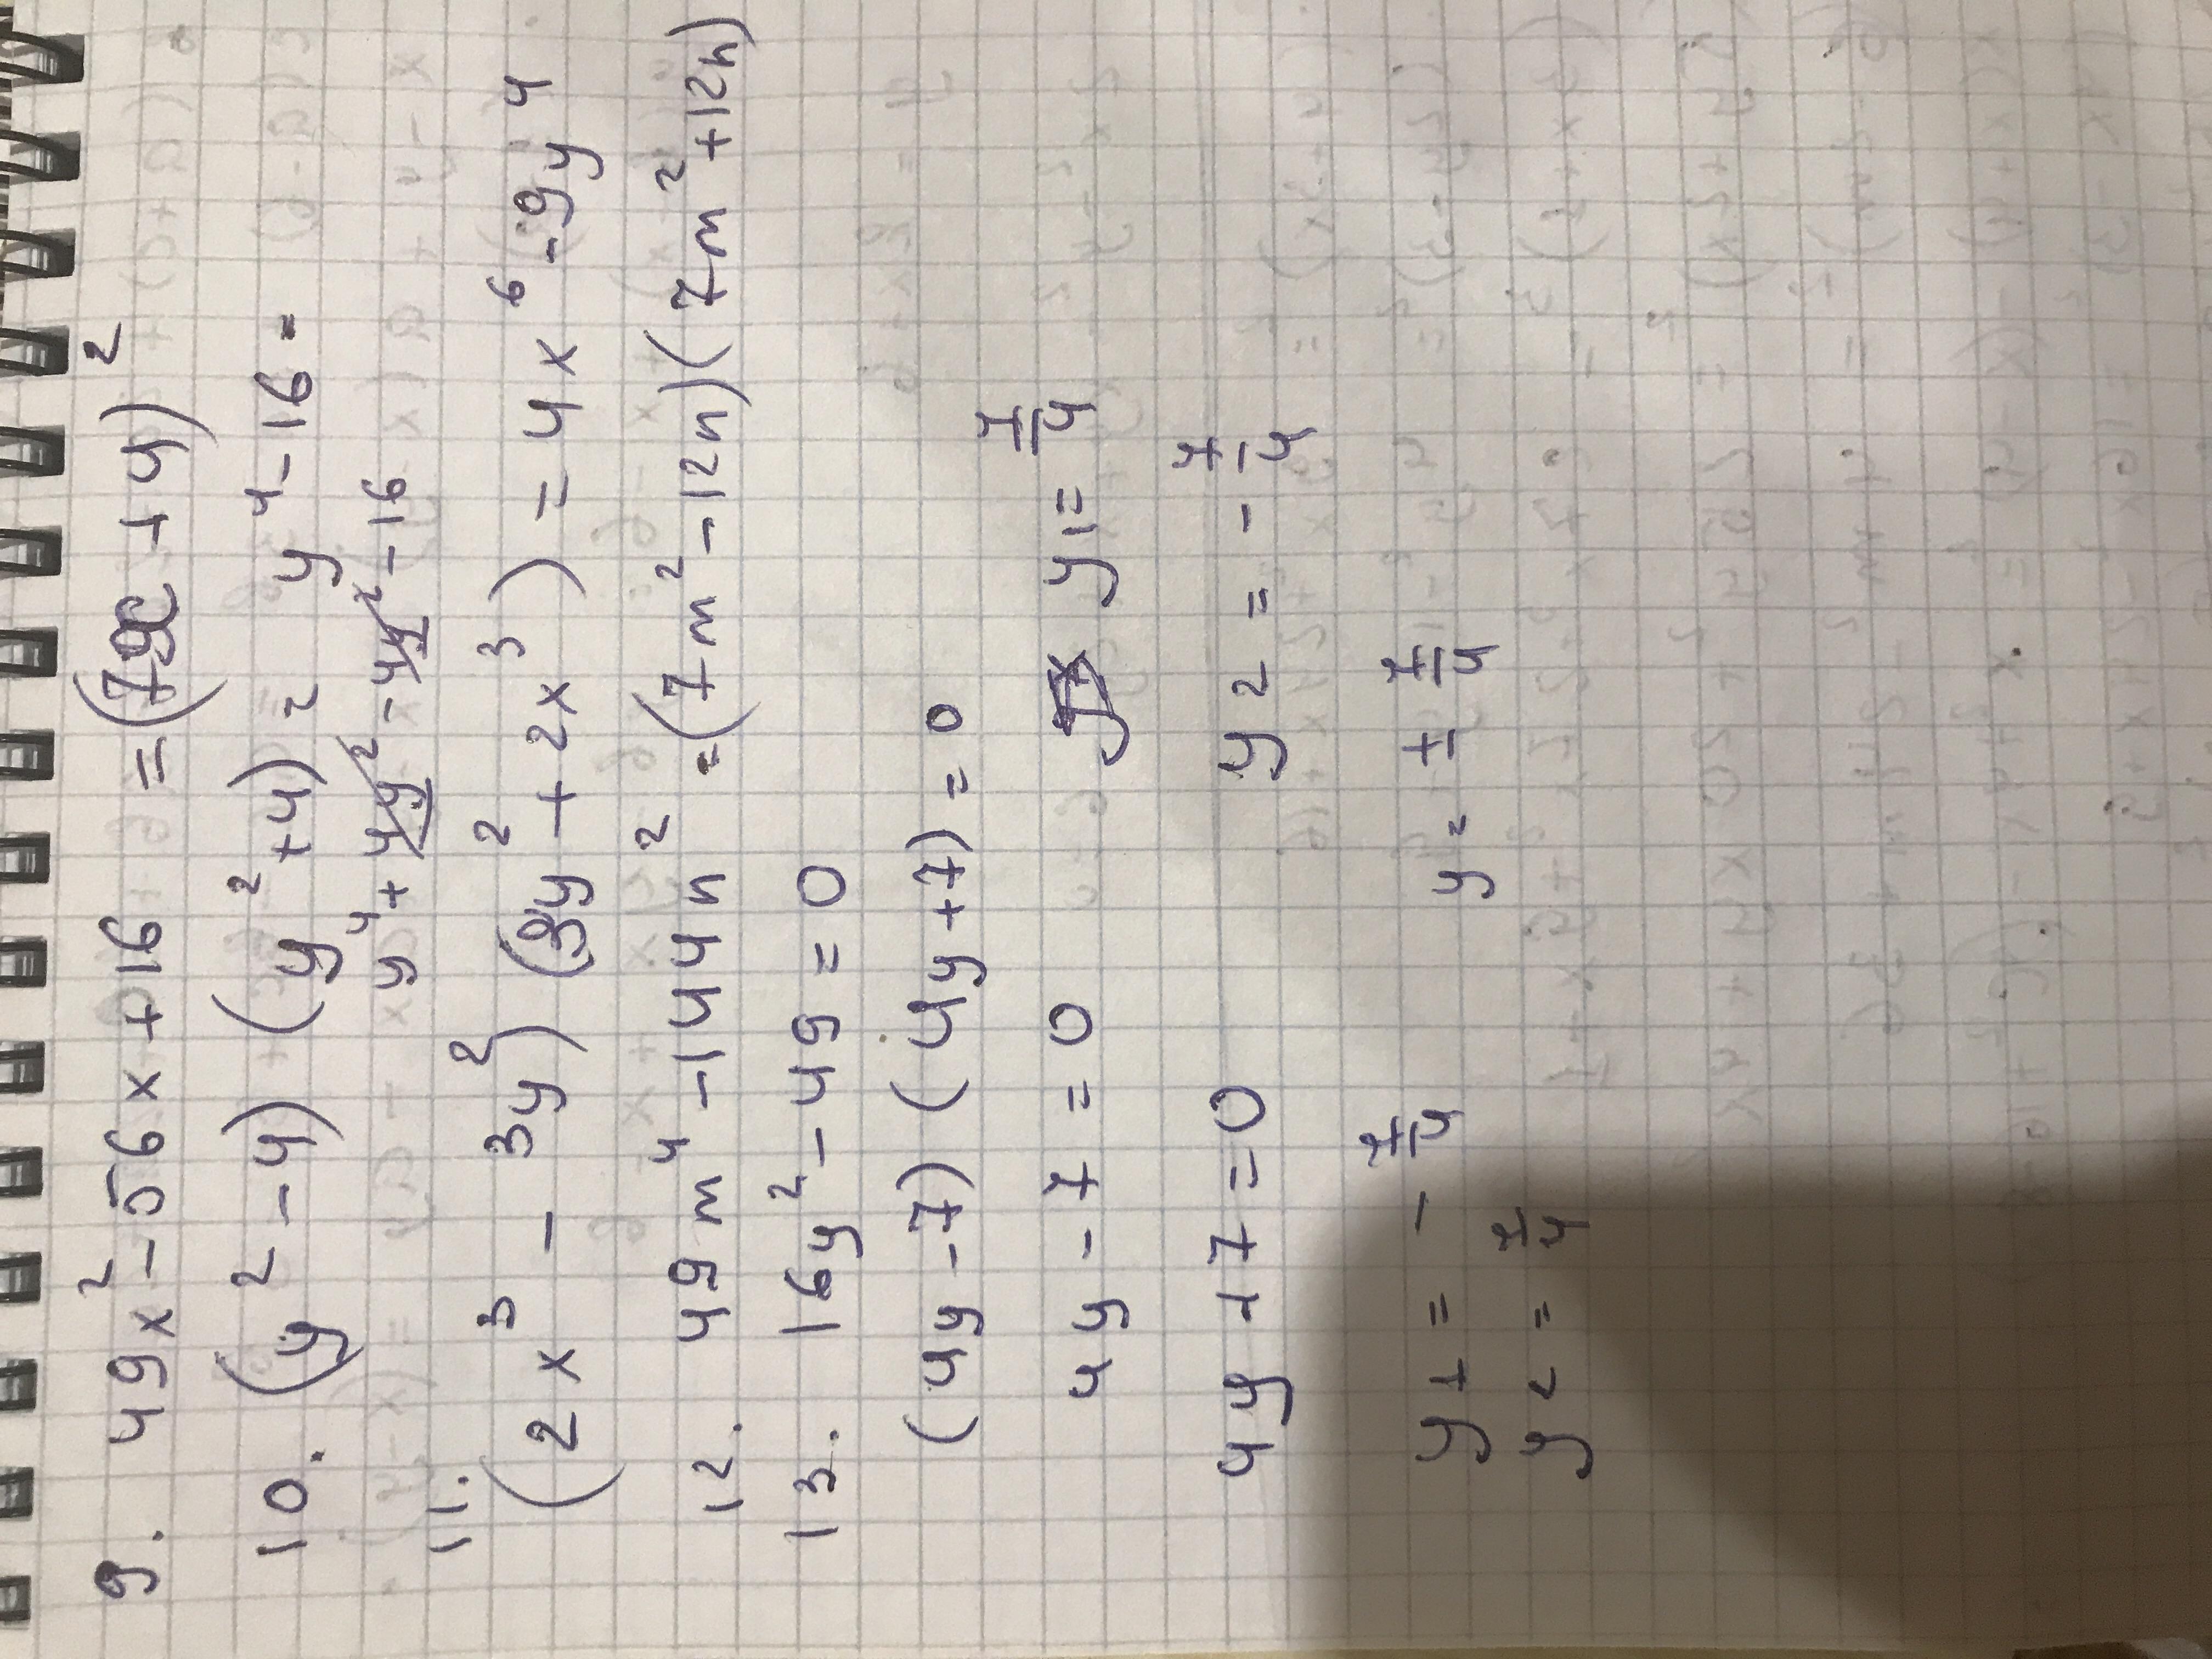 9. 49x² - 56x + 16 = (7x + 4)²
10. (y² - 4) (y² + 4) = y⁴ - 16 =
y⁴ + 4y² - 4y² - 16
11.
(2x³ - 3y²) (3y² + 2x³) = 4x⁶ - 9y⁴
12. 49m⁴ - 144n² = (7m² - 12n)(7m² + 12n)
13. 16y² - 49 = 0
(4y - 7) (4y + 7) = 0
4y - 7 = 0 y1 = 7/4
4y + 7 = 0 y2 = - 7/4
y1 = - 7/4 y = ± 7/4
y2 = 7/4